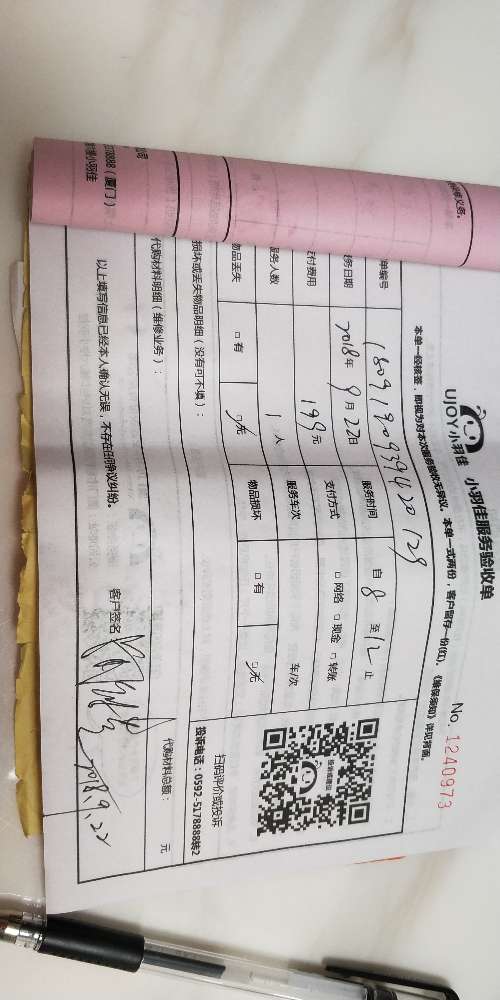 UJOY小羽佳 小羽佳服务验收单
No. 1240973
本单一经核签，即视为对本次服务验收无异议。本单一式两份，客户留存一份(红)。《维保须知》详见背面。
单编号
务日期 2018年9月22日 服务时间 自 8 至 12 止
付费用 199元 支付方式 □网络 □现金 □转账
服务人数 1人 服务车次 车/次
物品丢失 □有 □无 物品损坏 □有 □无
损坏或丢失物品明细（没有可不填）：
扫码评价或投诉
投诉电话：0592-5178888转2
代购材料明细（维修业务）：
代购材料总额： 元
以上填写信息已经本人确认无误，不存在任何争议纠纷。
客户签名
2018.9.22